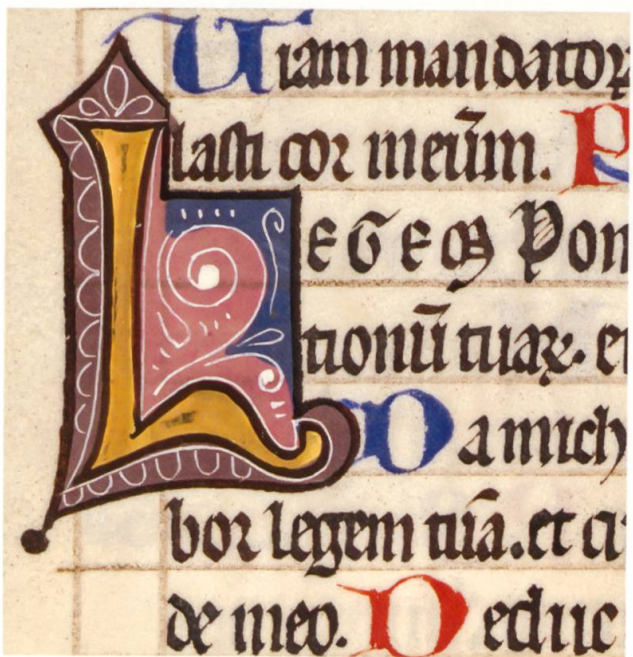 Uiam mandatoꝝ
lasti cor meūm. P
LEGEM Pon
tionū tuaꝝ. et
Da mich
bor legem tuā. et cu
de meo. Deduc